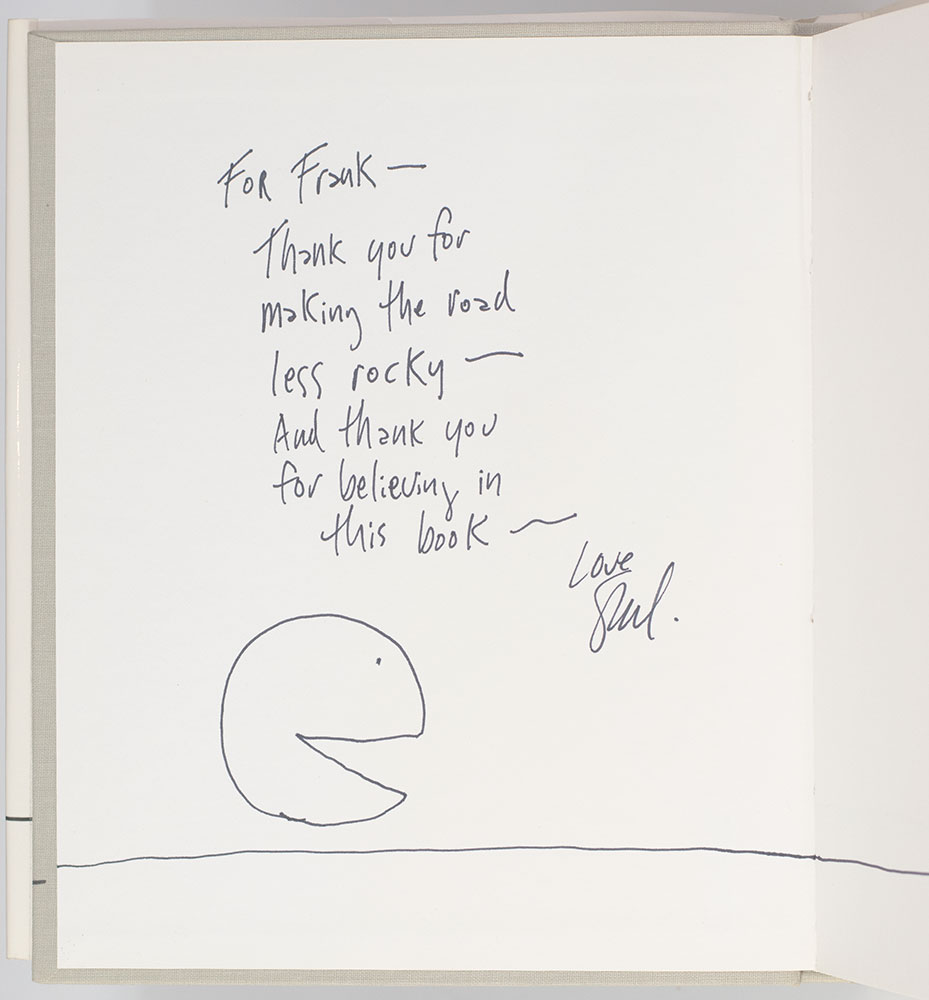 For Frank —
Thank you for
making the road
less rocky —
And thank you
for believing in
this book —
Love